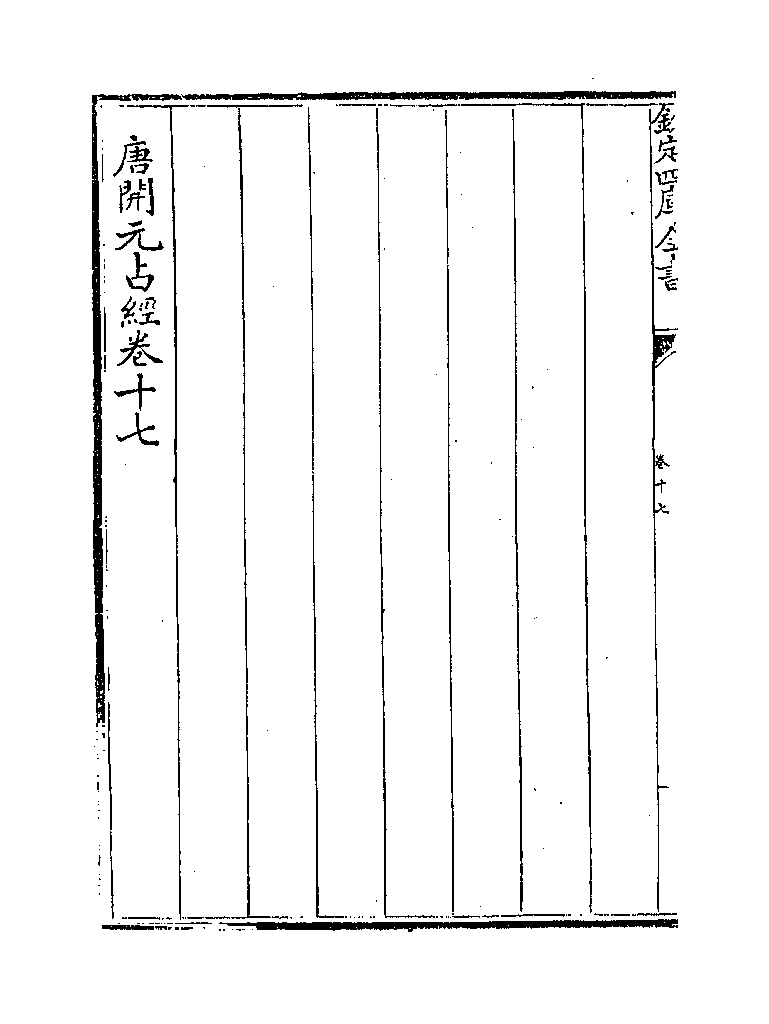 欽定四庫全書
卷十七
唐開元占經卷十七